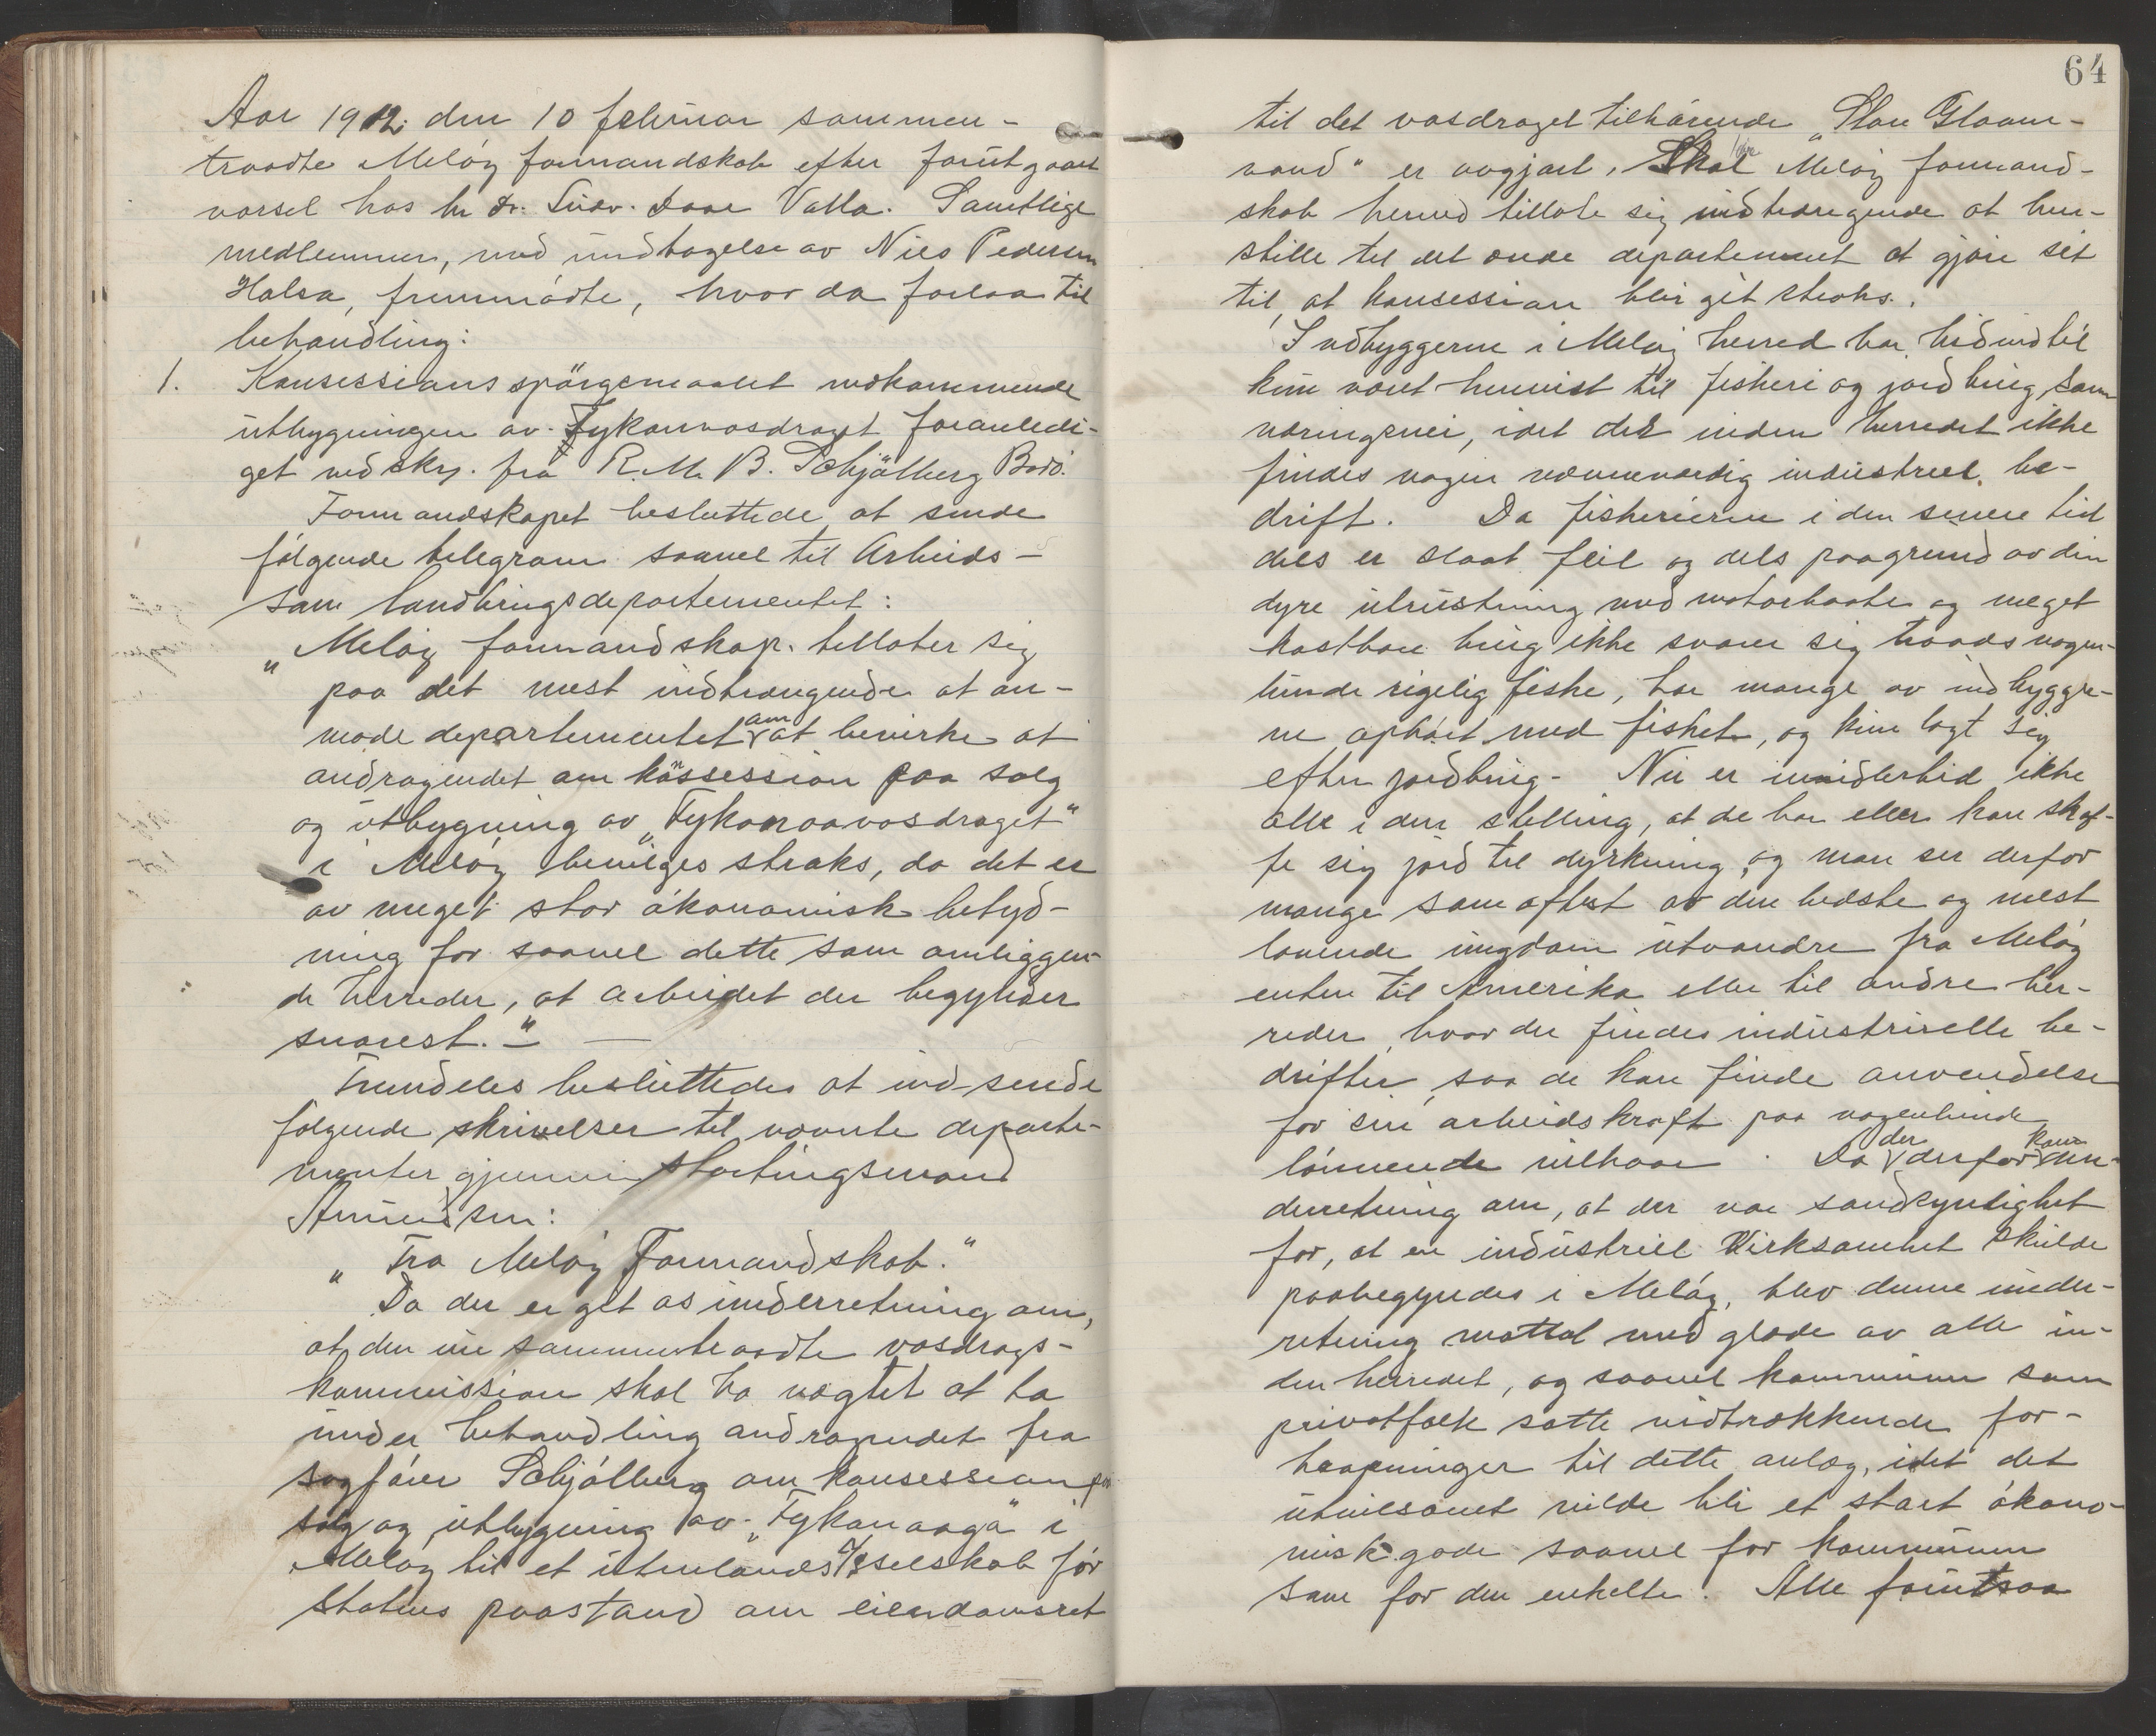 Aar 1912 den 10 februar sammen-
traadte Meløy formandskab efter forutgaaet
varsel hos hr dr. Daae Valla. Samtlige
medlemmer, med undtagelse av Nils Pedersen
Halsa, fremmødte, hvor da forlaa til
behandling:
1. Konsessions spørgsmaalet vedkommende
utbygningen av Fykanvasdraget foranledi-
get ved skr. fra R. M. B. Schjølberg Bodø.
Formandskapet besluttede at sende
følgende telegram saavel til Arbeids-
som landbrugsdepartementet:
„Meløy formandskap tillater sig
paa det mest indtrængende at an-
mode departementet om at bevirke at
andragendet om konsession paa salg
og utbygning av „Fykanaavasdraget"
i Meløy bevilges straks, da det er
av meget stor økonomisk betyd-
ning for saavel dette som omliggen-
de herreder, at arbeidet der begynder
snarest." –
Fremdeles besluttedes at indsende
følgende skrivelser til nævnte departe-
menter gjennem stortingsmand
Amundsen:
„Fra Meløy Formandskab."
Da der er git os underretning om,
at den nu sammentraadte vasdrags-
kommission skal ha vægret at ta
under behandling andragendet fra
sagfører Schjølberg om konsession paa
salg og utbygning av „Fykanaaga" i
Meløy til et utenlands A/S selskab før
Statens paastand om eiendomsret
64
til det vasdraget tilhørende „Stor Glaam-
vand" er avgjort, Skal Meløy formand-
skab herved tillate sig indtrængende at hen-
stille til det ærede departement at gjøre sit
til, at konsession blir git straks.
Indbyggerne i Meløy herred har hidindtil
kun været henvist til fiskeri og jordbrug som
næringsvei, idet det inden herredet ikke
findes nogen nævneværdig industriel be-
drift. Da fiskerierne i den senere tid
dels er slaat feil og dels paagrund av den
dyre utrustning med motorbaate og meget
kostbare brug ikke svarer sig traads nogen-
lunde rigelig fiske, har mange av indbygger-
ne ophørt med fisket, og kun lagt sig
efter jordbrug. Nu er imidlertid ikke
alle i den stilling, at de har eller kan skaf-
fe sig jord til dyrkning, og man ser derfor
mange som oftest av den bedste og mest
lovende ungdom utvandre fra Meløy
enten til Amerika eller til andre her-
reder, hvor der findes industrielle be-
drifter, saa de kan finde anvendelse
for sin arbeidskraft paa nogenlunde
lønnende vilkaar. Da der derfor kom un-
derretning om, at der var sandsynlighet
for, at en industriel Virksamhet skulde
paabegyndes i Meløy, blev denne under-
retning mottat med glæde av alle in-
den herredet, og saavel kommunen som
privatfolk satte vidtrækkende for-
haapninger til dette anlæg, idet det
utvilsomt vilde bli et stort økono-
misk gode saavel for kommunen
som for den enkelte. Alle forutsaa